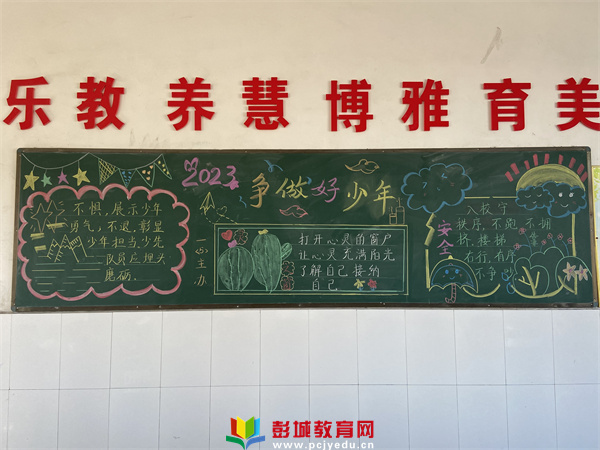 乐教 养慧 博雅 育美
2023 争做好少年
不惧，展示少年
勇气，不退，彰显
少年担当，少先
队员应埋头
磨砺。
一(5)主办
打开心灵的窗户
让心灵充满阳光
了解自己接纳
自己
安全
入校守
秩序，不跑不拥
挤，楼梯靠
右行，有序
不争
彭城教育网
www.pcjyedu.cn